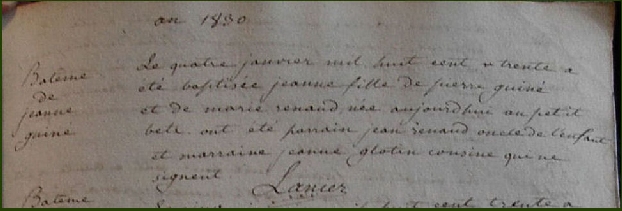 an 1830
Batême
de
jeanne
guiné
Le quatre janvier mil huit cent trente a
été baptisée jeanne fille de pierre guiné
et de marie renaud née aujourdhui au petit
bele ont été parrain jean renaud oncle de l'enfant
et marraine jeanne glotin cousine qui ne
signent Lancer
Batême
huit cent trente a